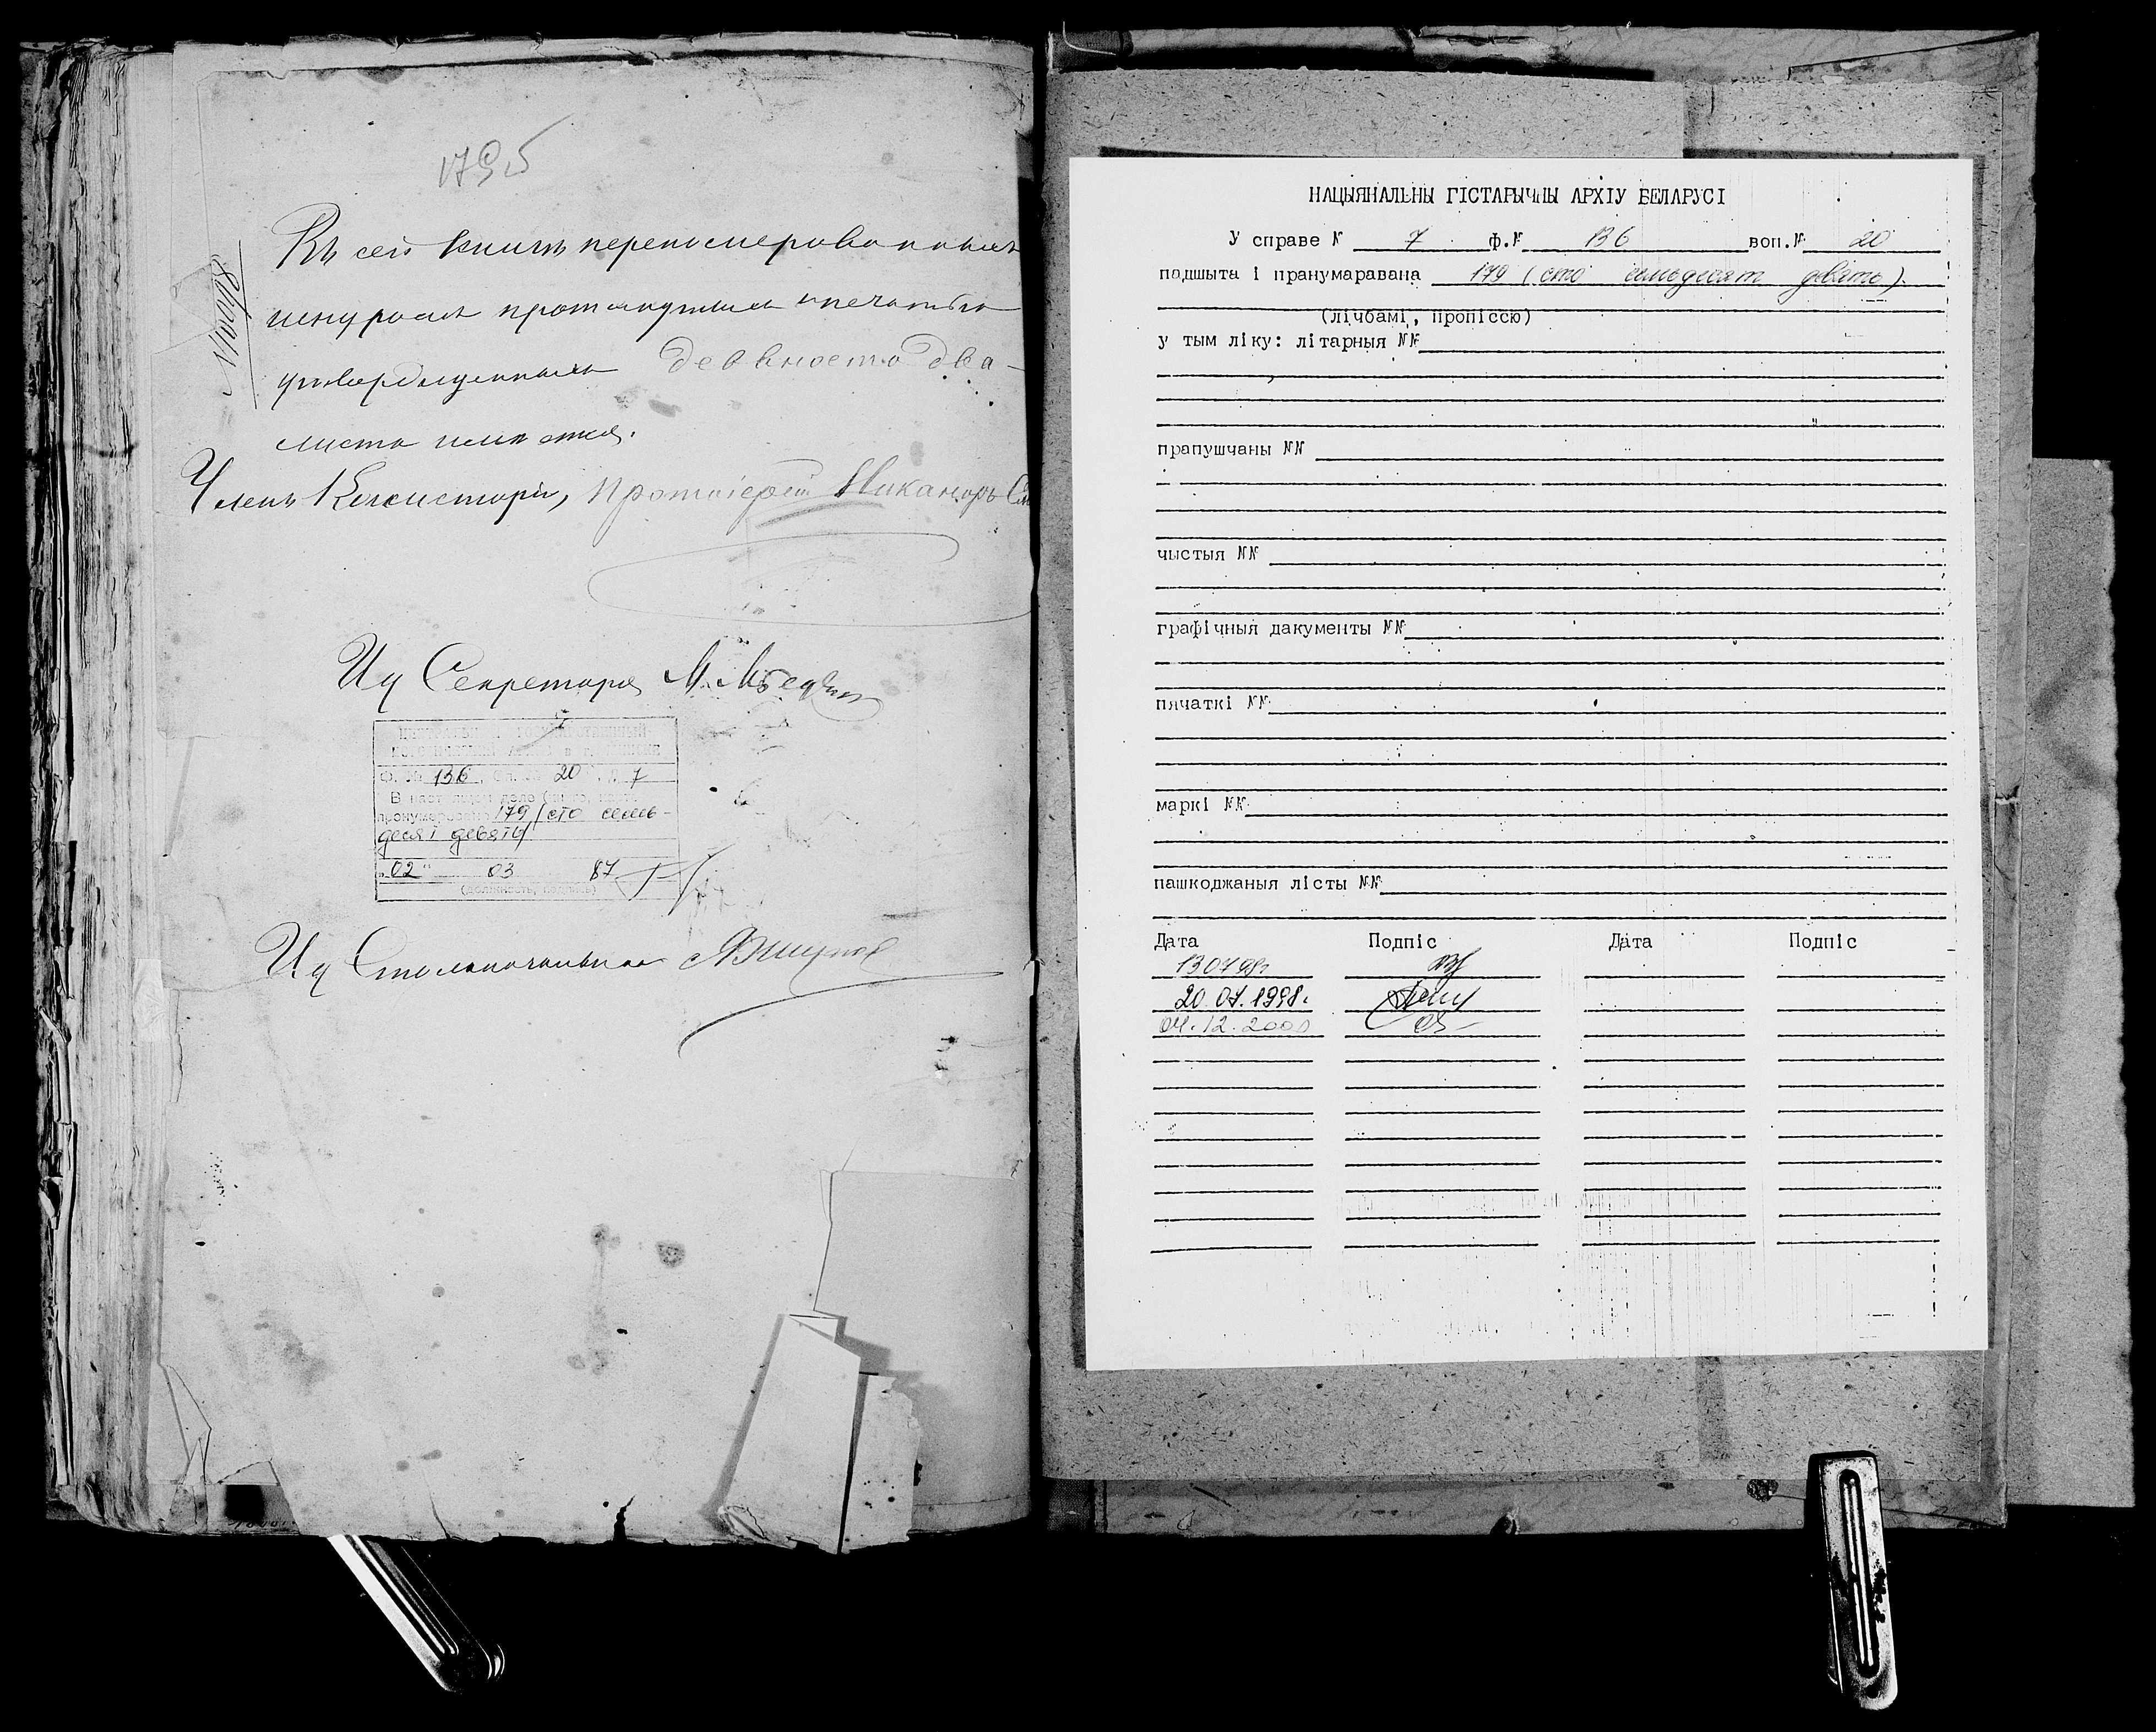 179б
№10098
Въ сей книгѣ перенумерованныхъ
шнуромъ протянутыхъ и печатью
утвержденныхъ девяносто два
листа имѣется.
Членъ Консисторіи, Протоіерей Никаноръ
Ид Секретаря
Ф. № 136, оп. № 20, д. 7
В настоящем деле
пронумеровано 179 (сто семь-
десят девять)
"02" 03 87
(должность, подпись)
Ид Столоначальника
НАЦЫЯНАЛЬНЫ ГІСТАРЫЧНЫ АРХІУ БЕЛАРУСІ
У справе № 7 ф.№ 136 воп.№ 20
падшыта і пранумаравана 179 (сто семьдесят девять)
(лічбамі, пропіссю)
у тым ліку: літарныя №№
прапушчаны №№
чыстыя №№
графічныя дакументы №№
пячаткі №№
маркі №№
пашкоджаныя лісты №№
Дата Подпіс Дата Подпіс
130798г
20.07.1998г.
04.12.200